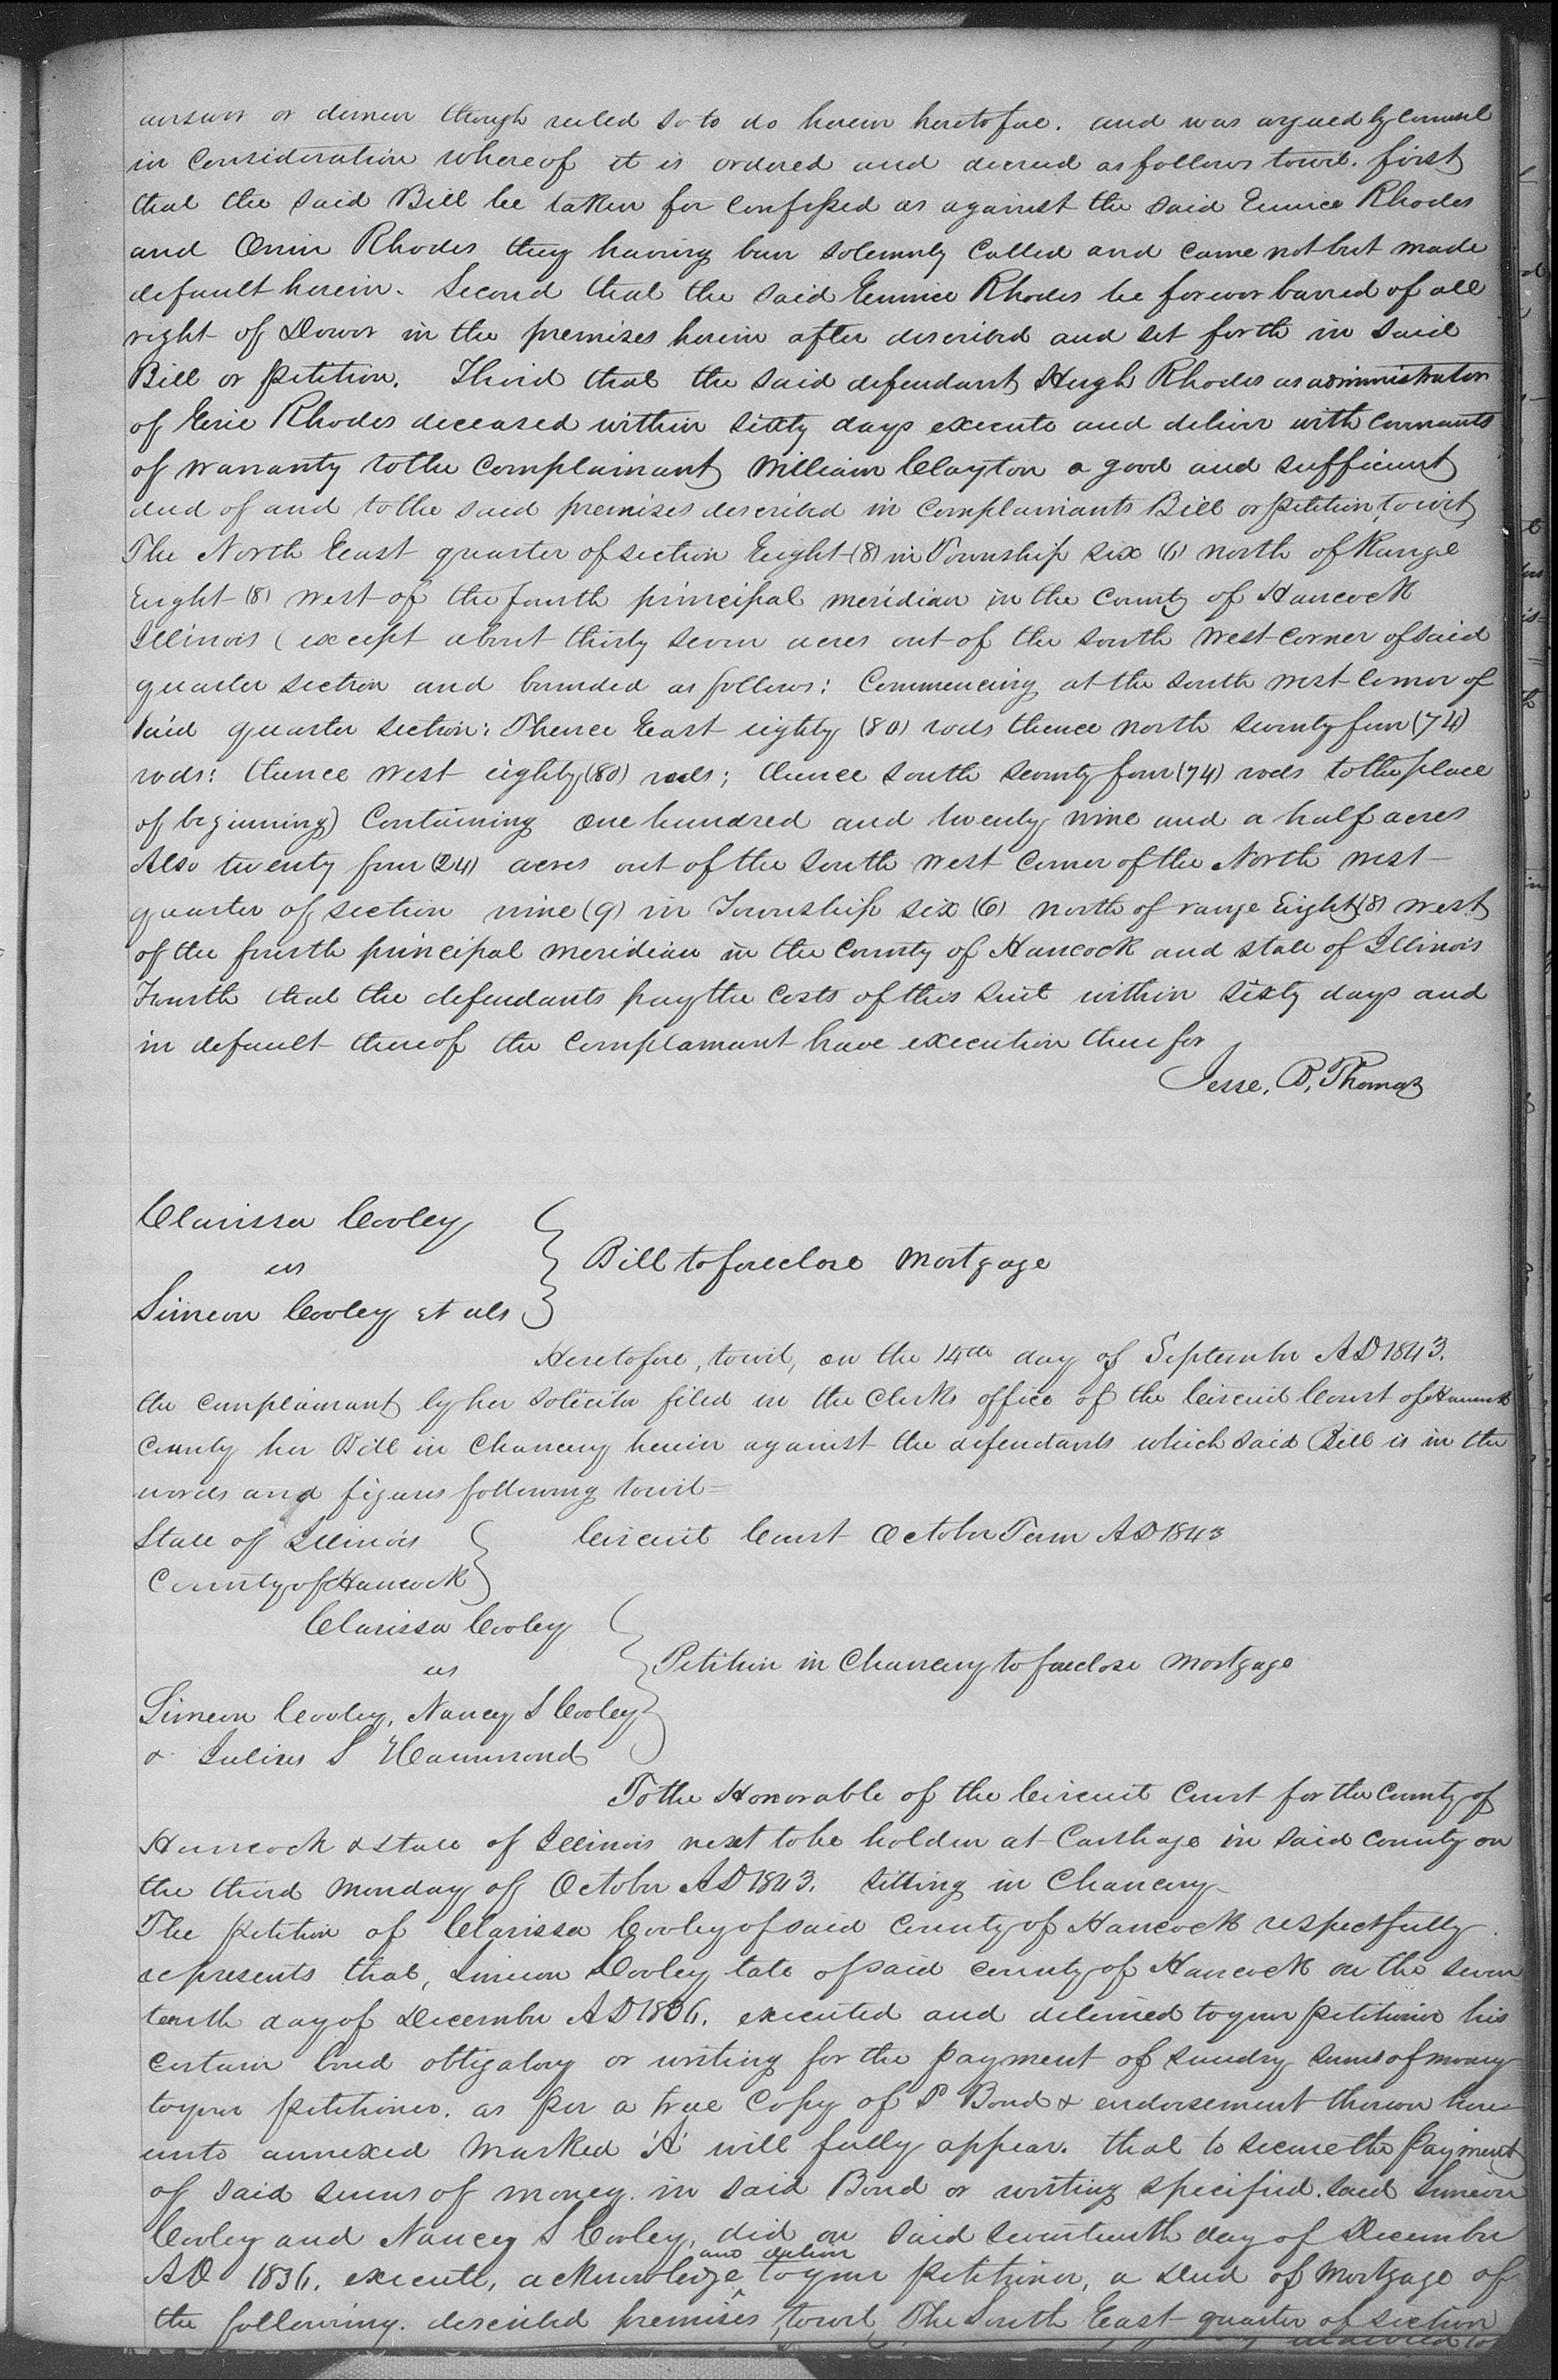 answer or demur though ruled so to do herein heretofore. and was argued by counsel
in Consideration whereof it is ordered and decreed as follows towit. first
that the said Bill be taken for confessed as against the said Eunice Rhodes
and Orrin Rhodes they having been solemnly Called and came not but made
default herein. Second that the said Eunice Rhodes be forever barred of all
right of Dower in the premises herein after described and set forth in said
Bill or petition. Third that the said defendant Hugh Rhodes as administrator
of Erie Rhodes deceased within sixty days execute and deliver with covenants
of warranty to the Complainant William Clayton a good and sufficient
deed of and to the said premises described in Complainants Bill or petition, to wit,
The North East quarter of section Eight (8) in Township six (6) north of Range
Eight (8) west of the fourth principal meridian in the County of Hancock
Illinois (except about thirty seven acres out of the south west corner of said
quarter section and bounded as follows: Commencing at the south west corner of
said quarter section: Thence East eighty (80) rods thence north seventy four (74)
rods: thence west eighty (80) rods; thence south seventy four (74) rods to the place
of beginning) Containing one hundred and twenty nine and a half acres
Also twenty four (24) acres out of the south west corner of the North west
quarter of section nine (9) in Township six (6) north of range Eight (8) west
of the fourth principal meridian in the County of Hancock and state of Illinois
Fourth that the defendants pay the costs of this suit within sixty days and
in default thereof the Complainant have execution therefor
Jesse. B. Thomas
Clarissa Cooley
vs
Simeon Cooley et als
Bill to foreclose Mortgage
Heretofore, towit, on the 14th day of September AD 1843.
the complainant by her solicitor filed in the Clerks office of the Circuit Court of Hancock
County her Bill in Chancery herein against the defendants which said Bill is in the
words and figures following towit=
State of Illinois
County of Hancock
Circuit Court October Term AD 1843
Clarissa Cooley
vs
Simeon Cooley, Nancy S Cooley
& Julius S Hammond
Petition in Chancery to foreclose Mortgage
To the Honorable of the Circuit Court for the County of
Hancock & state of Illinois next to be holden at Carthage in said County on
the third Monday of October AD 1843. sitting in Chancery
The petition of Clarissa Cooley of said County of Hancock respectfully
represents that, Simeon Cooley late of said county of Hancock on the seven
teenth day of December AD 1836. executed and delivered to your petitioner his
certain bond obligatory or writing for the payment of sundry sums of money
to your petitioner. as per a true Copy of S Bond & endorsement thereon here
unto annexed marked 'A' will fully appear. that to secure the payment
of said sums of money. in said Bond or writing specified. said Simeon
Cooley and Nancy S Cooley, did on said seventeenth day of December
AD 1836. execute, acknowledge and deliver to your petitioner, a Deed of Mortgage of
the following. described premises, towit, The South East quarter of section